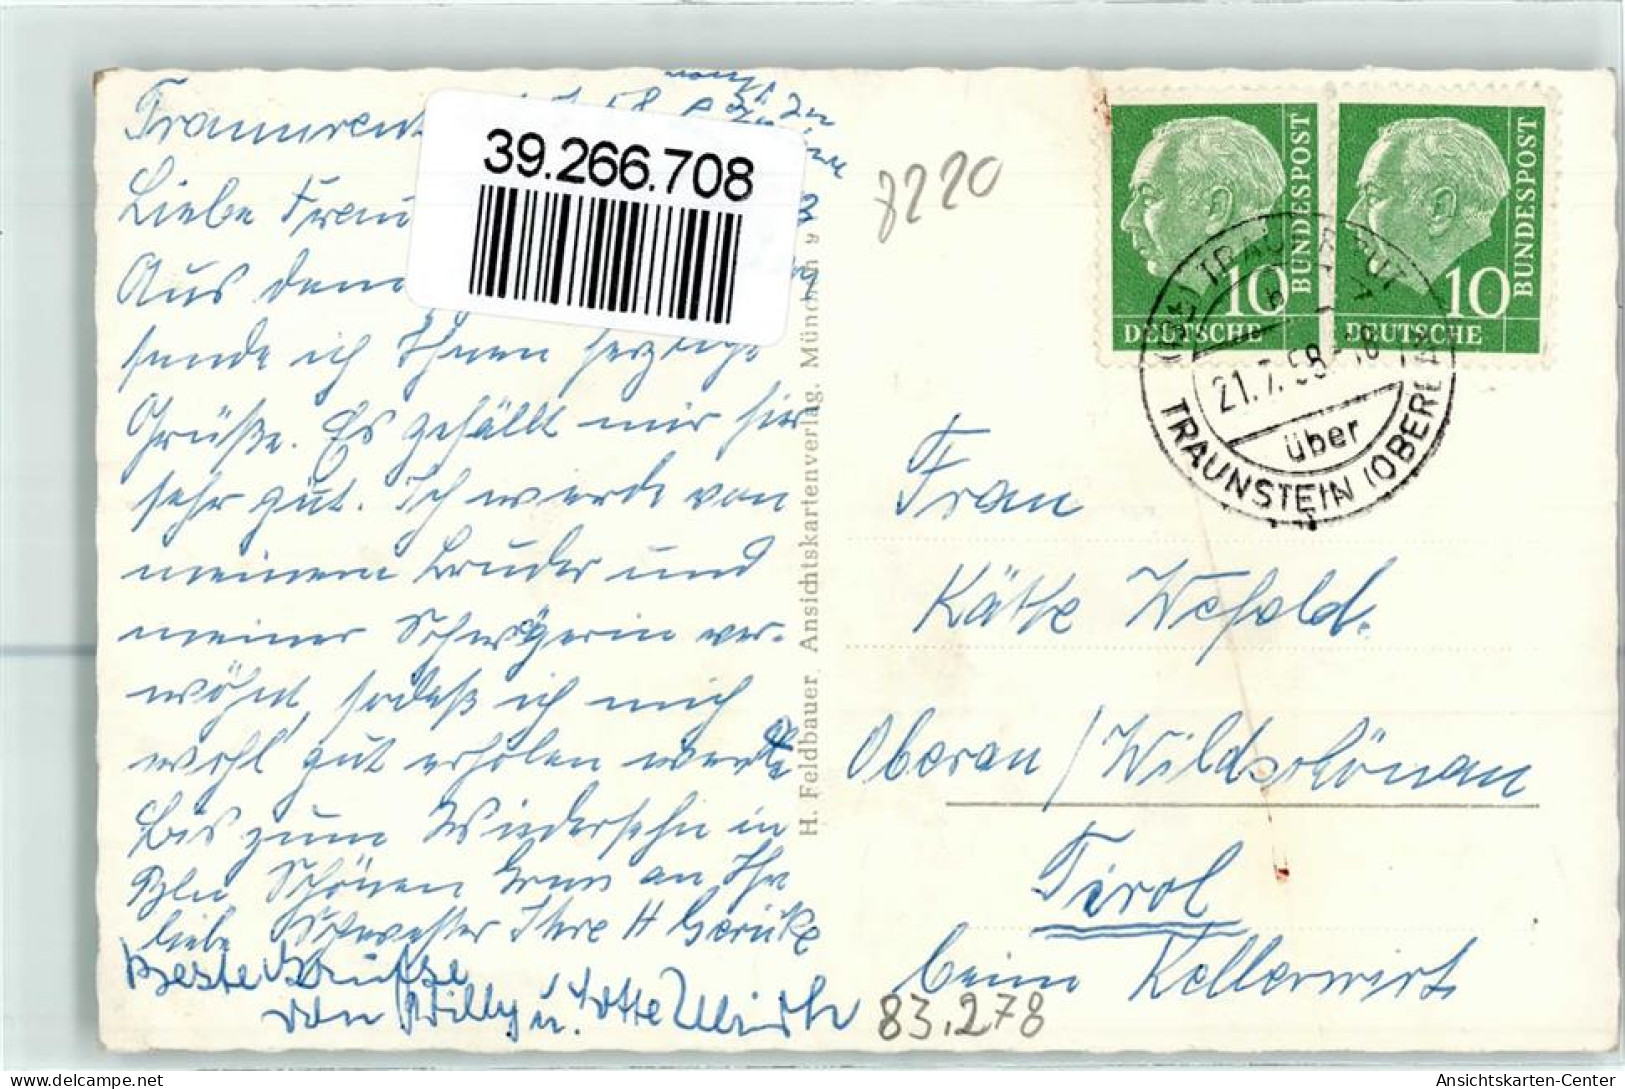 Traunreut
Liebe Frau
Aus dem
sende ich Ihnen herzliche
Grüße. Es gefällt mir hier
sehr gut. Ich werde von
meinem Bruder und
meiner Schwägerin ver-
wöhnt, sodaß ich mich
wohl gut erholen werde
Bis zum Wiedersehn in
Bln Schönen Gruss an Ihr
liebe Schwester Ihre H Gericke
Beste Grüsse
von Willy u. Lotte
39.266.708
H. Feldbauer, Ansichtskartenverlag, München 9
8220
10
DEUTSCHE
BUNDESPOST
10
DEUTSCHE
BUNDESPOST
TRAUNREUT
21.7.58-18
über
TRAUNSTEIN (OBERBAY)
Frau
Käthe Wefold.
Oberau/Wildschönau
Tirol
beim Kellerwirt
83.278
Ansichtskarten-Center